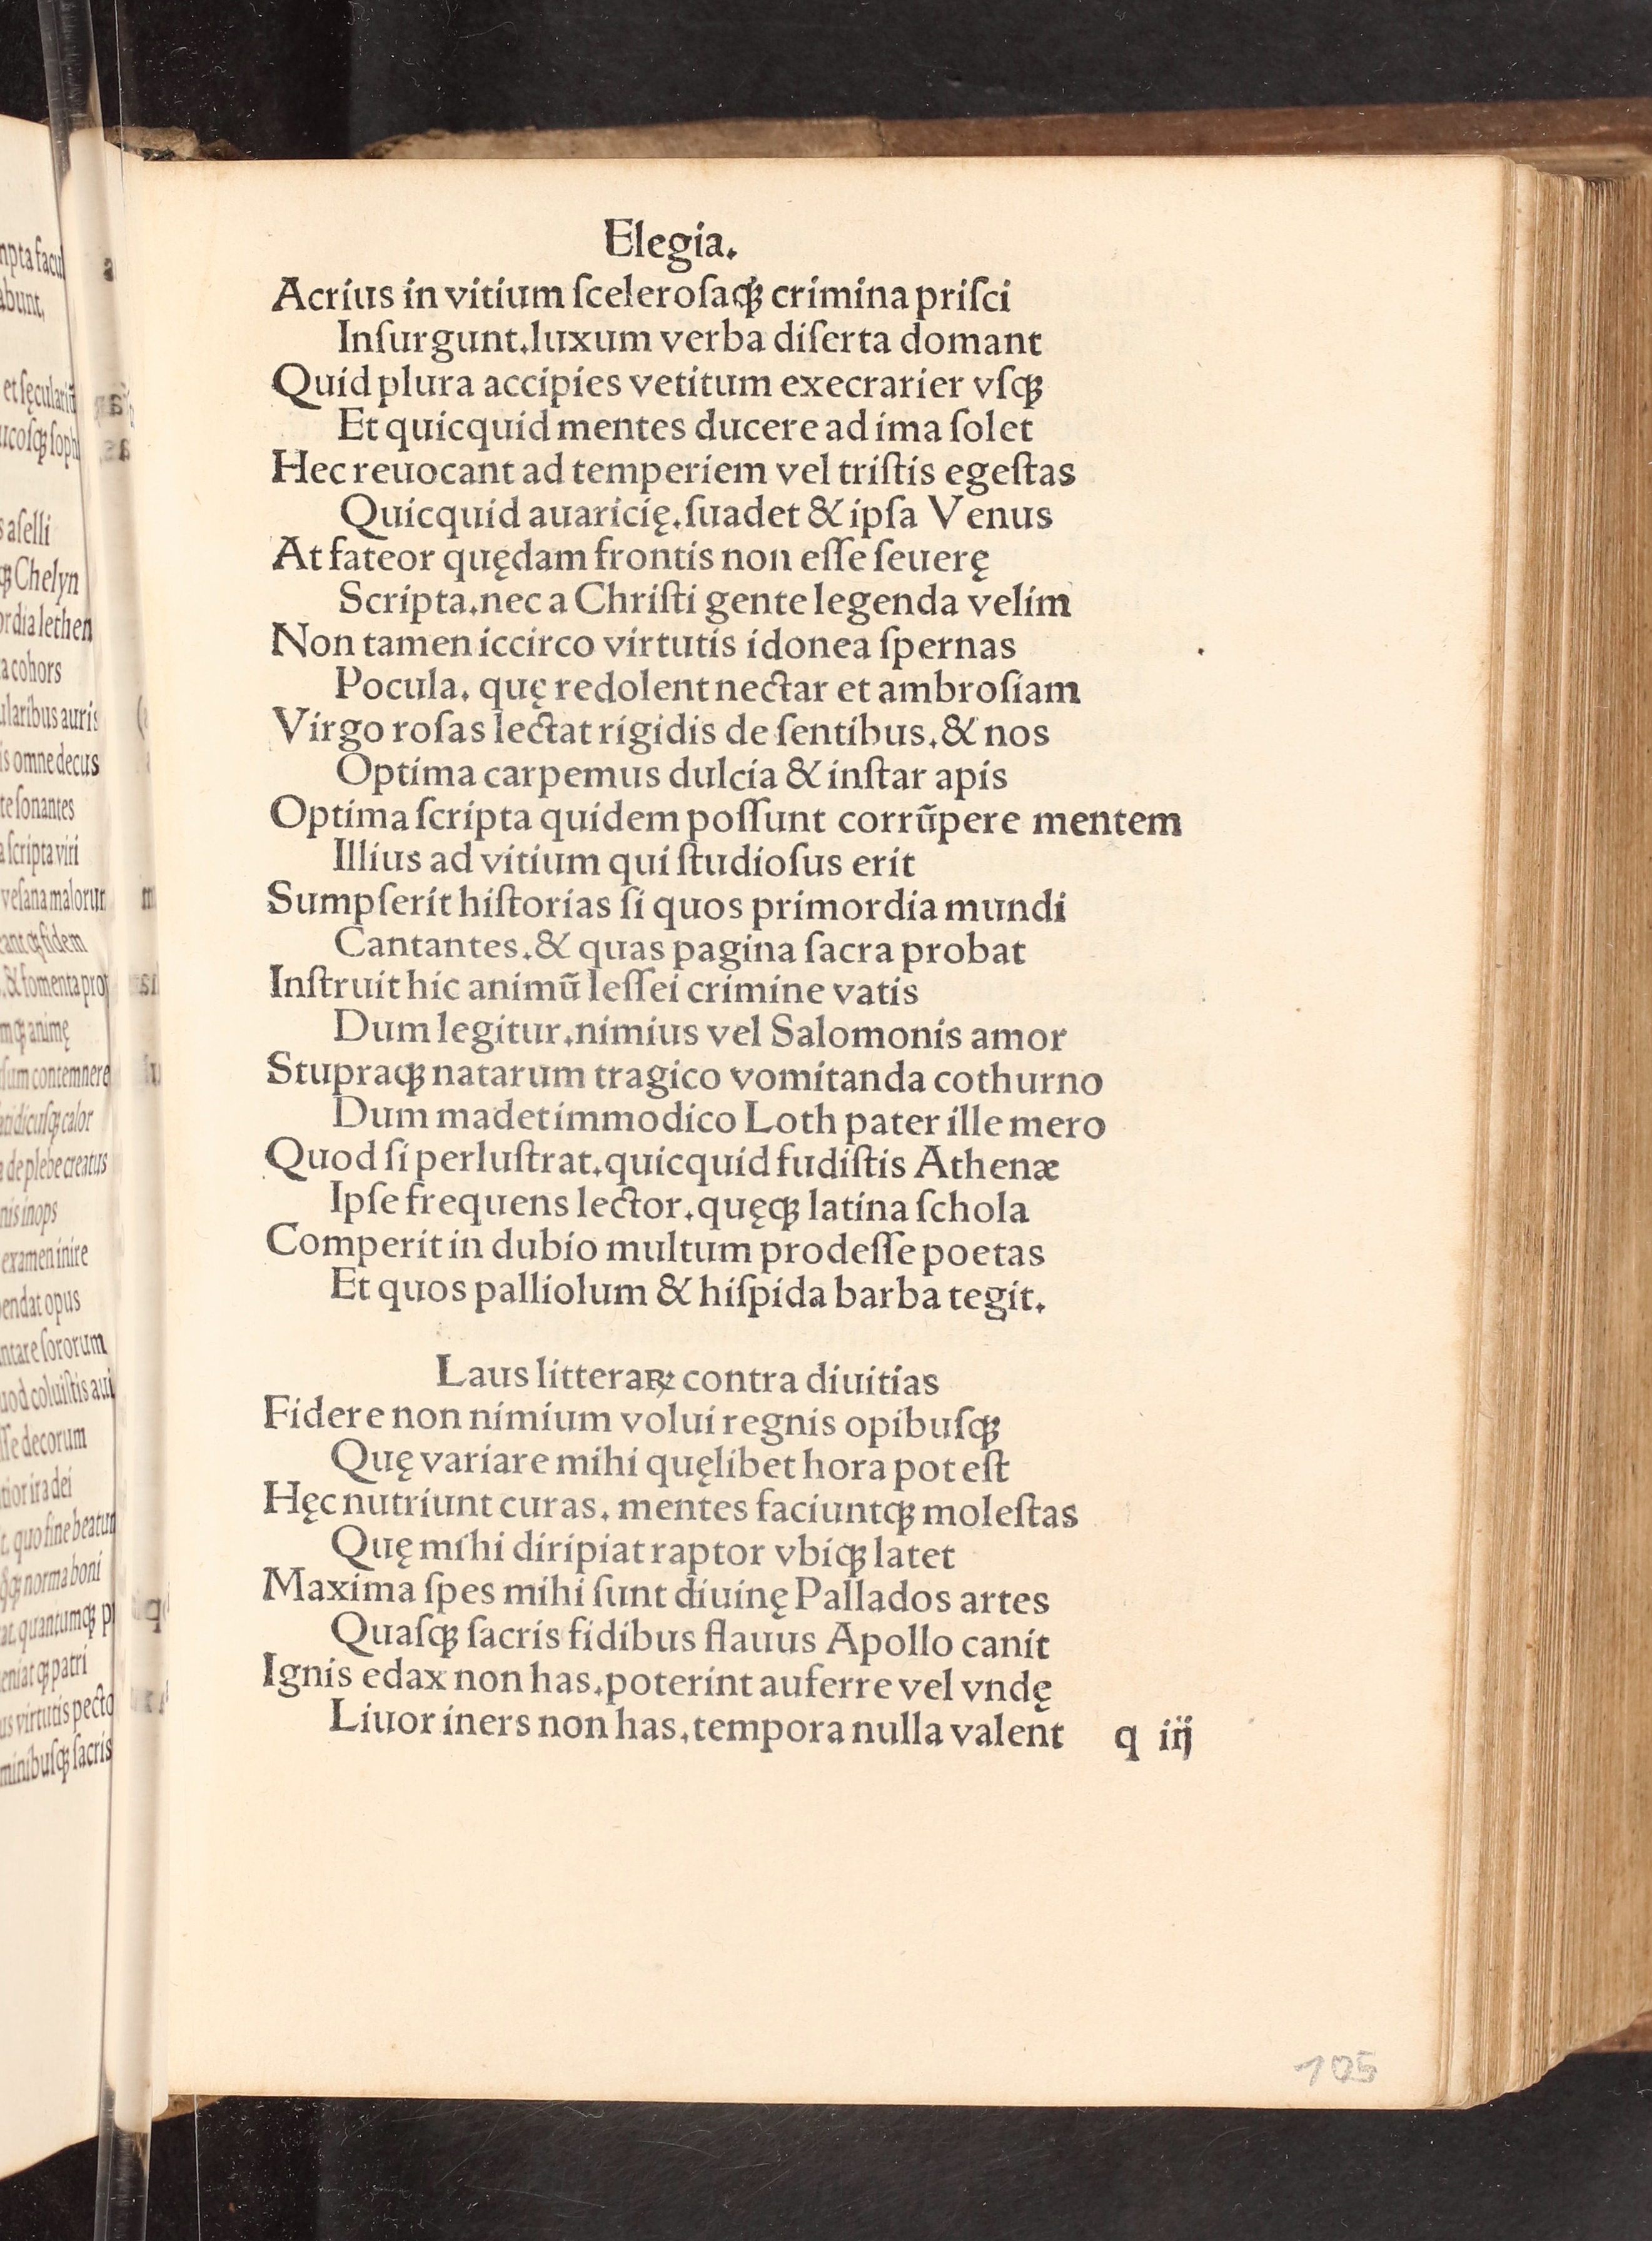 Elegia.
Acrius in vitium ſceleroſaqꝫ crimina priſci
Inſurgunt.luxum verba diſerta domant
Quid plura accipies vetitum execrarier vſqꝫ
Et quicquid mentes ducere ad ima ſolet
Hec reuocant ad temperiem vel triſtis egeſtas
Quicquid auaricię.ſuadet & ipſa Venus
At fateor quędam frontis non eſſe ſeuerę
Scripta.nec a Chriſti gente legenda velim
Non tamen iccirco virtutis idonea ſpernas
Pocula. quę redolent nectar et ambroſiam
Virgo roſas lectat rigidis de ſentibus.& nos
Optima carpemus dulcia & inſtar apis
Optima ſcripta quidem poſſunt corrūpere mentem
Illius ad vitium qui ſtudioſus erit
Sumpſerit hiſtorias ſi quos primordia mundi
Cantantes.& quas pagina ſacra probat
Inſtruit hic animū leſſei crimine vatis
Dum legitur.nimius vel Salomonis amor
Stupraqꝫ natarum tragico vomitanda cothurno
Dum madet immodico Loth pater ille mero
Quod ſi perluſtrat.quicquid fudiſtis Athenæ
Ipſe frequens lector.quęqꝫ latina ſchola
Comperit in dubio multum prodeſſe poetas
Et quos palliolum & hiſpida barba tegit.
Laus litteraꝝ contra diuitias
Fidere non nimium volui regnis opibuſqꝫ
Quę variare mihi quęlibet hora poteſt
Hęc nutriunt curas. mentes faciuntqꝫ moleſtas
Quę mihi diripiat raptor vbiqꝫ latet
Maxima ſpes mihi ſunt diuinę Pallados artes
Quaſqꝫ ſacris fidibus flauus Apollo canit
Ignis edax non has.poterint auferre vel vndę
Liuor iners non has.tempora nulla valent q iij
105